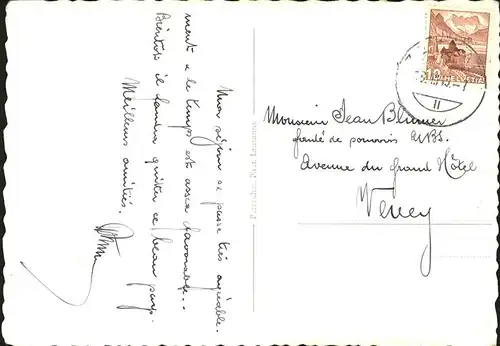 Mon séjour se passe très agréable-
ment & le temps est assez favorable..
Bientôt il faudra quitter ce beau pays.
Meilleures amitiés.
HELVETIA
Monsieur Jean Blumer
fondé de pouvoirs UBS.
Avenue du Grand Hôtel
Vevey